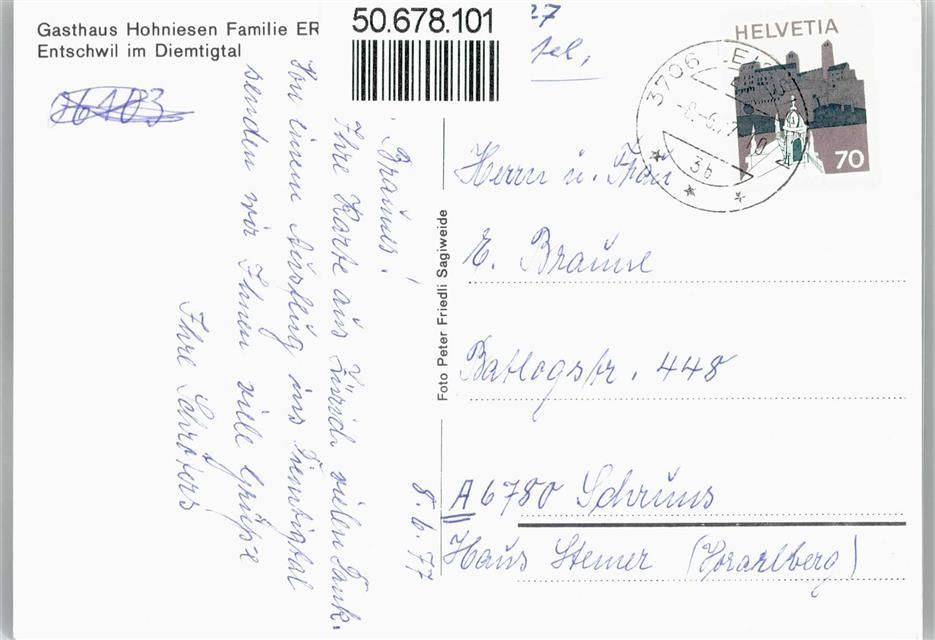 Gasthaus Hohniesen Familie ER
Entschwil im Diemtigtal
50.678.101
27
tel,
HELVETIA
70
3706
-8.-6.77
3b
16103
8.6.77
Braunes!
Ihre Karte aus Zürich vielen Dank.
Von einem Ausflug ins Diemtigtal
senden wir Ihnen viele Grüße
Ihre Schröfers
Foto Peter Friedli Sagiweide
Herrn u. Frau
E. Braune
Batlogstr. 448
A 6780 Schruns
Haus Steiner (Vorarlberg)